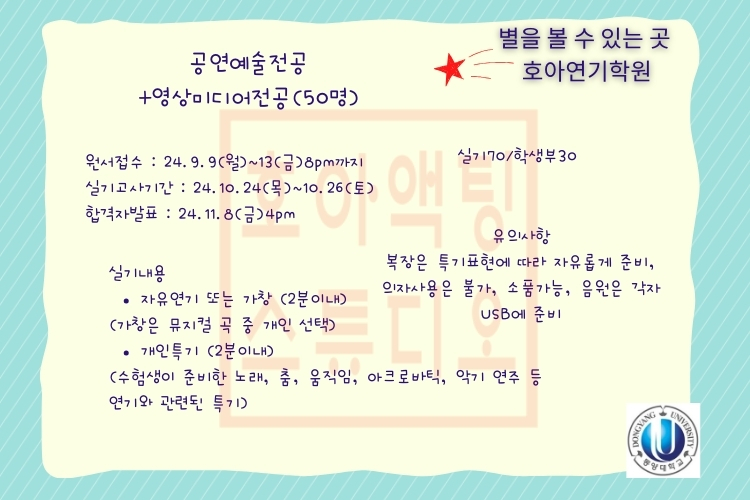 별을 볼 수 있는 곳
호아연기학원
공연예술전공
+영상미디어전공(50명)
원서접수 : 24.9.9(월)~13(금)8pm까지
실기고사기간 : 24.10.24(목)~10.26(토)
합격자발표 : 24.11.8(금)4pm
실기70/학생부30
유의사항
복장은 특기표현에 따라 자유롭게 준비,
의자사용은 불가, 소품가능, 음원은 각자
USB에 준비
실기내용
• 자유연기 또는 가창 (2분이내)
(가창은 뮤지컬 곡 중 개인 선택)
• 개인특기 (2분이내)
(수험생이 준비한 노래, 춤, 움직임, 아크로바틱, 악기 연주 등
연기와 관련된 특기)
호아액팅
스튜디오
DONGYANG UNIVERSITY
동양대학교